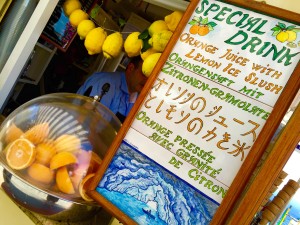 SPECIAL
DRINK
ORANGE JUICE WITH
LEMON ICE SLUSH
ORANGENSAFT MIT
ZITRONEN-GRAMOLATE
オレンジのジュース
とレモンのかき氷
ORANGE PRESSÉE
AVEC GRANITÉ
DE CITRON